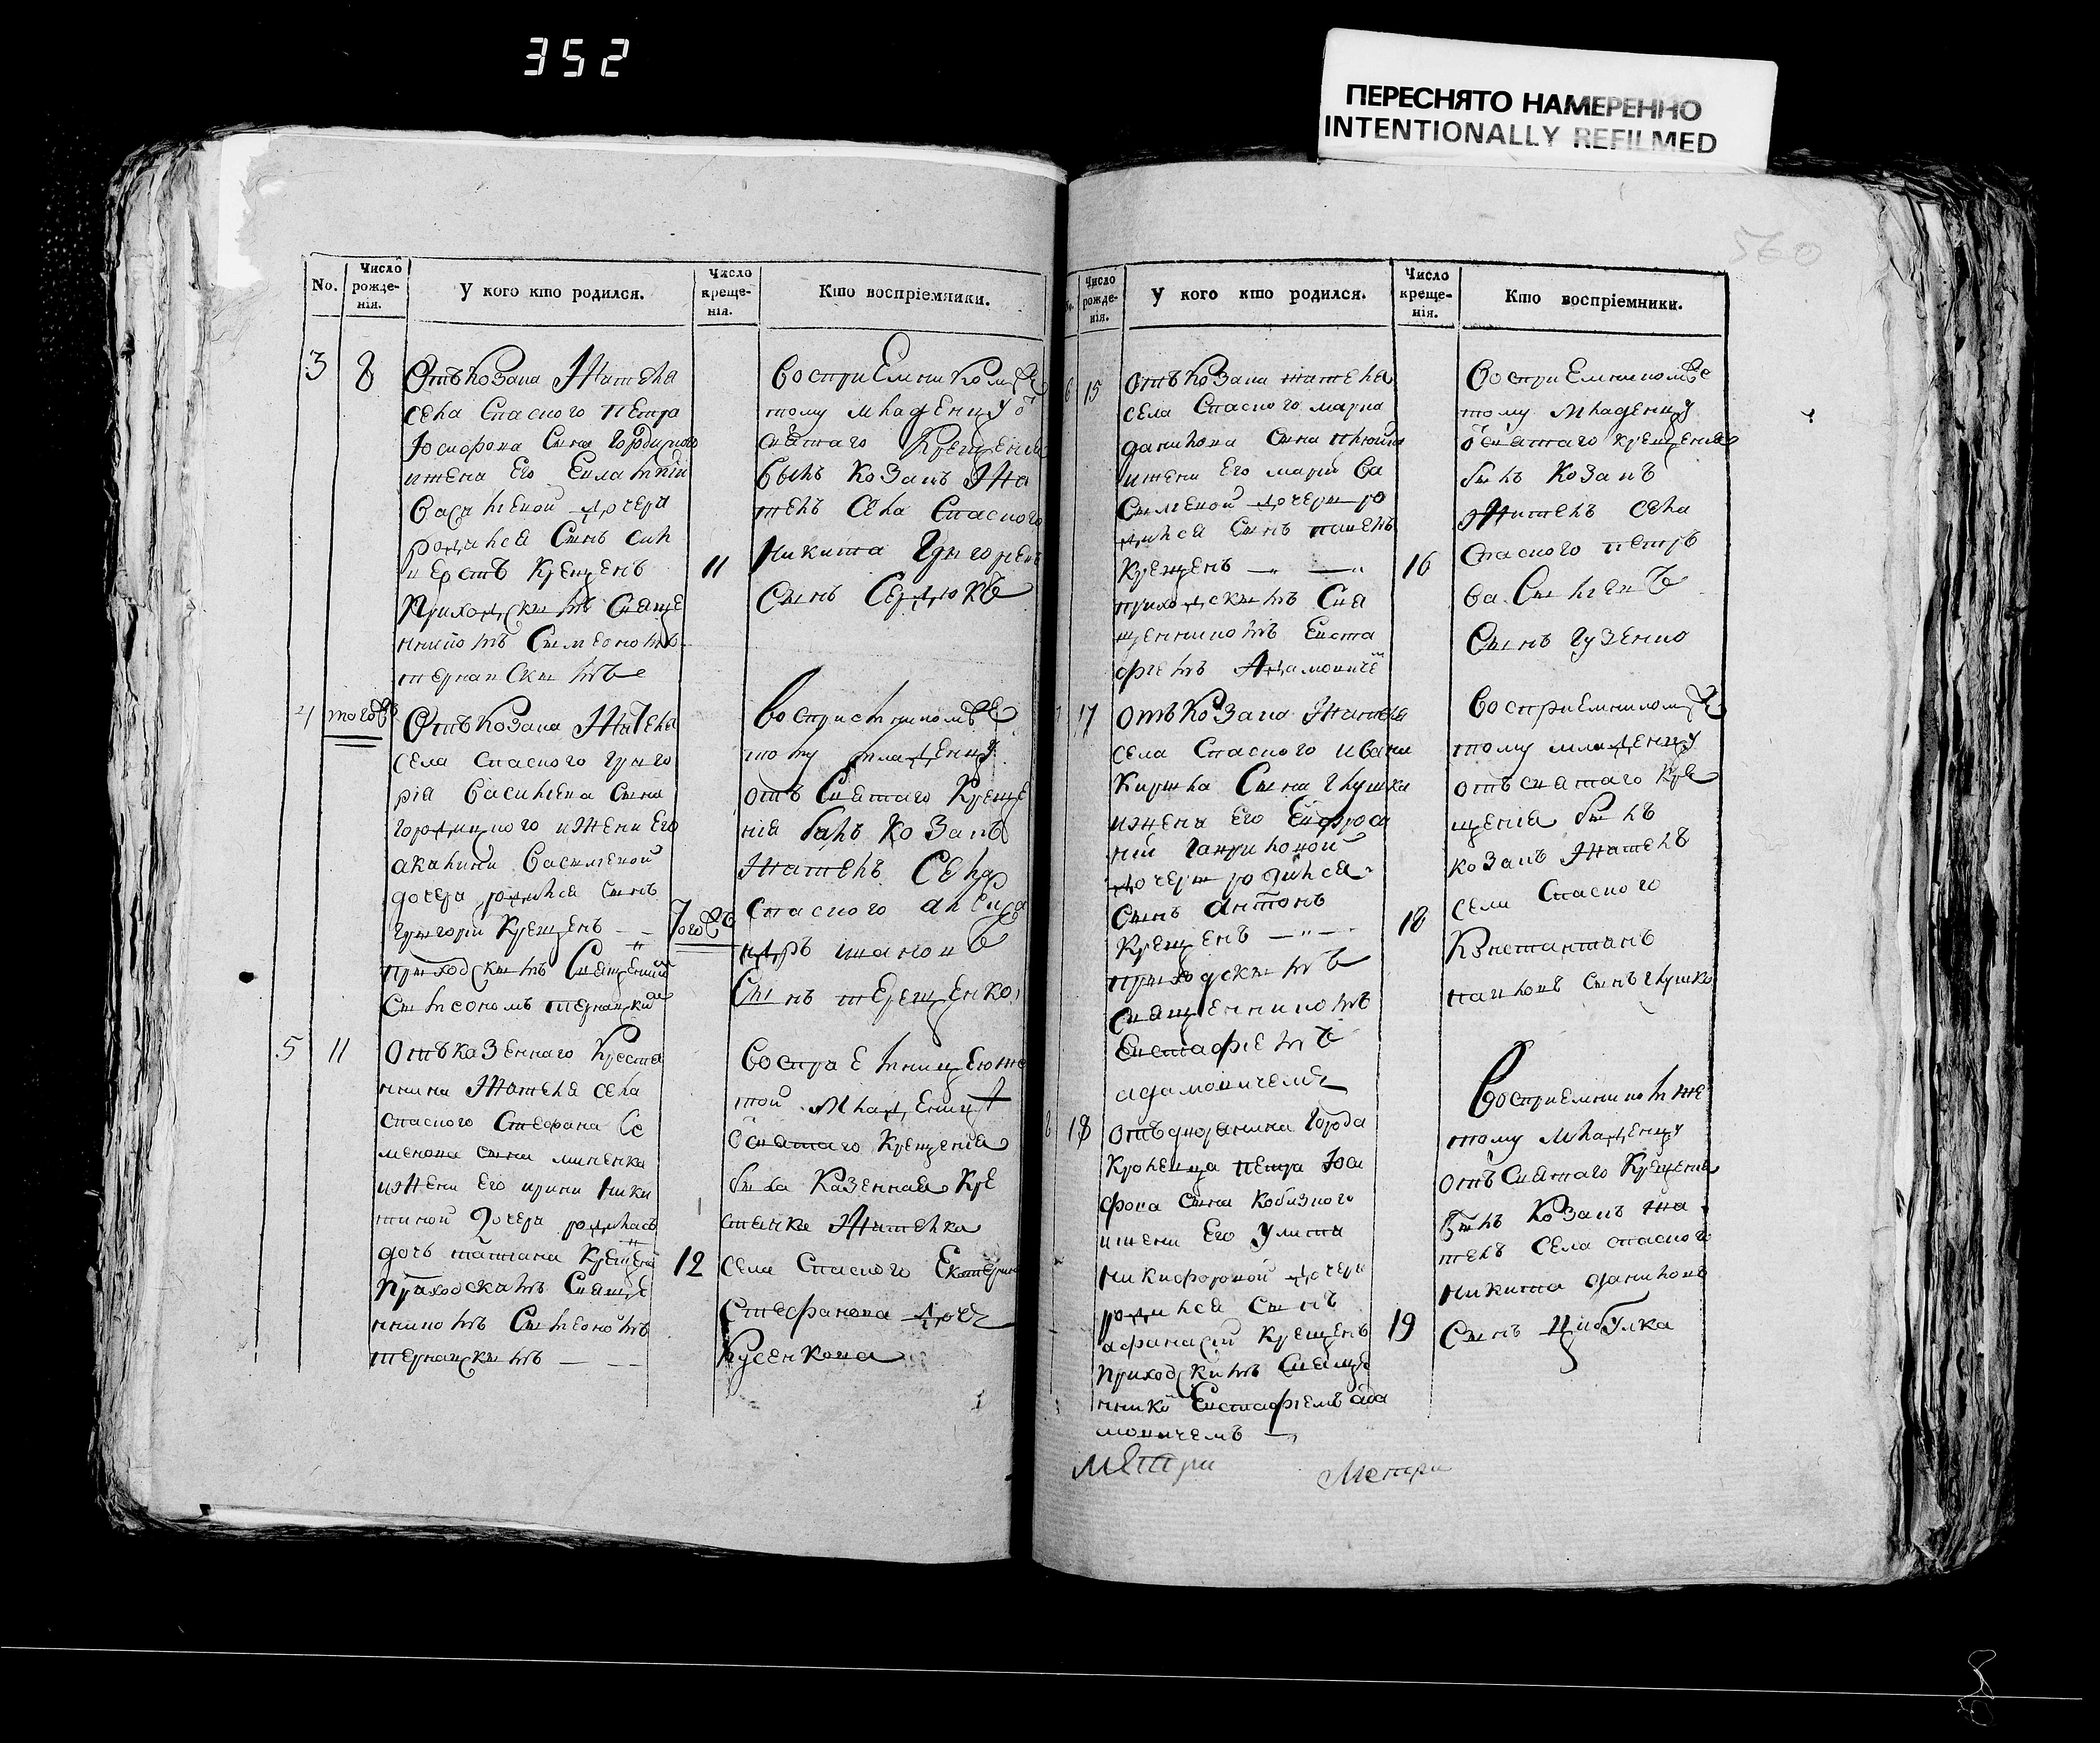 352
ПЕРЕСНЯТО НАМЕРЕННО
INTENTIONALLY REFILMED
560
No.
Число рожде-нія.
У кого кто родился.
Число креще-нія.
Кто воспріемники.
3
8
Отъ Козака Жителя
села Спаского Петра
Іосифова Сына Городиского
ижена Его Евлампіи
Василіевой дочери
родился Сынъ Сил
верстъ Крещенъ
Приходскимъ Свяще
нникомъ Симеономъ
тернавскимъ
11
Восприемникомъ се
тому младенцу ѿ
святаго Крещения
былъ Козакъ Жи
тель Села Спаского
Никита Григориевъ
Сынъ Сердюкъ
4
тогожъ
Отъ Козака Жителя
села Спаского Григо
рія Василіева Сына
Городиского ижени Его
акилини Василевой
дочери родился Сынъ
Григорій Крещенъ
приходскимъ Священий
Симеономъ тернавским
Тогожъ
Восприемникомъ се
тому младенцу
отъ Святаго Креще
нія былъ Козакъ
Житель Села
Спаского алекса
ндръ ивановъ
Сынъ терещенко
5
11
Отъ казенного Крестя
нина Жителя села
спаского Стефана Се
менова сына миненка
ижени Его ирини Ники
тиной дочери родилась
дочь татиана Крещена
Приходскимъ Свяще
нникомъ Симеономъ
тернавскимъ
12
Восприемницею се
той младеници
ѿ Святаго Крещенія
была Казенная Кре
стянка Жителка
села Спаского Екатерина
Стефанова дочъ
Кусенкова
No.
Число рожде-нія.
У кого кто родился.
Число креще-нія.
Кто воспріемники.
6
15
Отъ Козака жителя
села Спаского марка
данилова Сына
ижени Его марии Ва
Силиевой дочери ро
дился Сынъ
Крещенъ
приходскимъ Свя
щенникомъ Евста
фиемъ Адамовиче
16
Восприемникомъ се
тому младенцу
ѿ святаго крещения
былъ Козакъ
Житель села
Спаского петръ
Ва Силиевъ
Сынъ Гузенко
17
отъ Козака Жителя
села Спаского ивана
Кирила Сына Глушка
ижена Его Ефроси
нии Гавриловой
дочери родился
Сынъ антонъ
Крещенъ
приходскимъ
Священникомъ
Евстафіемъ
адамовичемъ
18
Восприемникомъ се
тому младенцу
отъ святаго Кре
щенія былъ
козакъ Житель
села Спаского
Константинъ
павловъ Сынъ Глушко
8
18
отъ дворянина Города
Кролевца петра Іоси
фова сына Кобизкого
ижени Его Улити
Никифоровой дочери
родился Сынъ
афанасій Крещенъ
Приходскимъ Свяще
нникомъ Евстафіемъ ада
мовичемъ
19
Восприемникомъ же
тому младенцу
отъ Святаго Крещения
былъ Козакъ жи
тель Села спаского
Никита даниловъ
Сынъ Цибулка
Метри
Метри